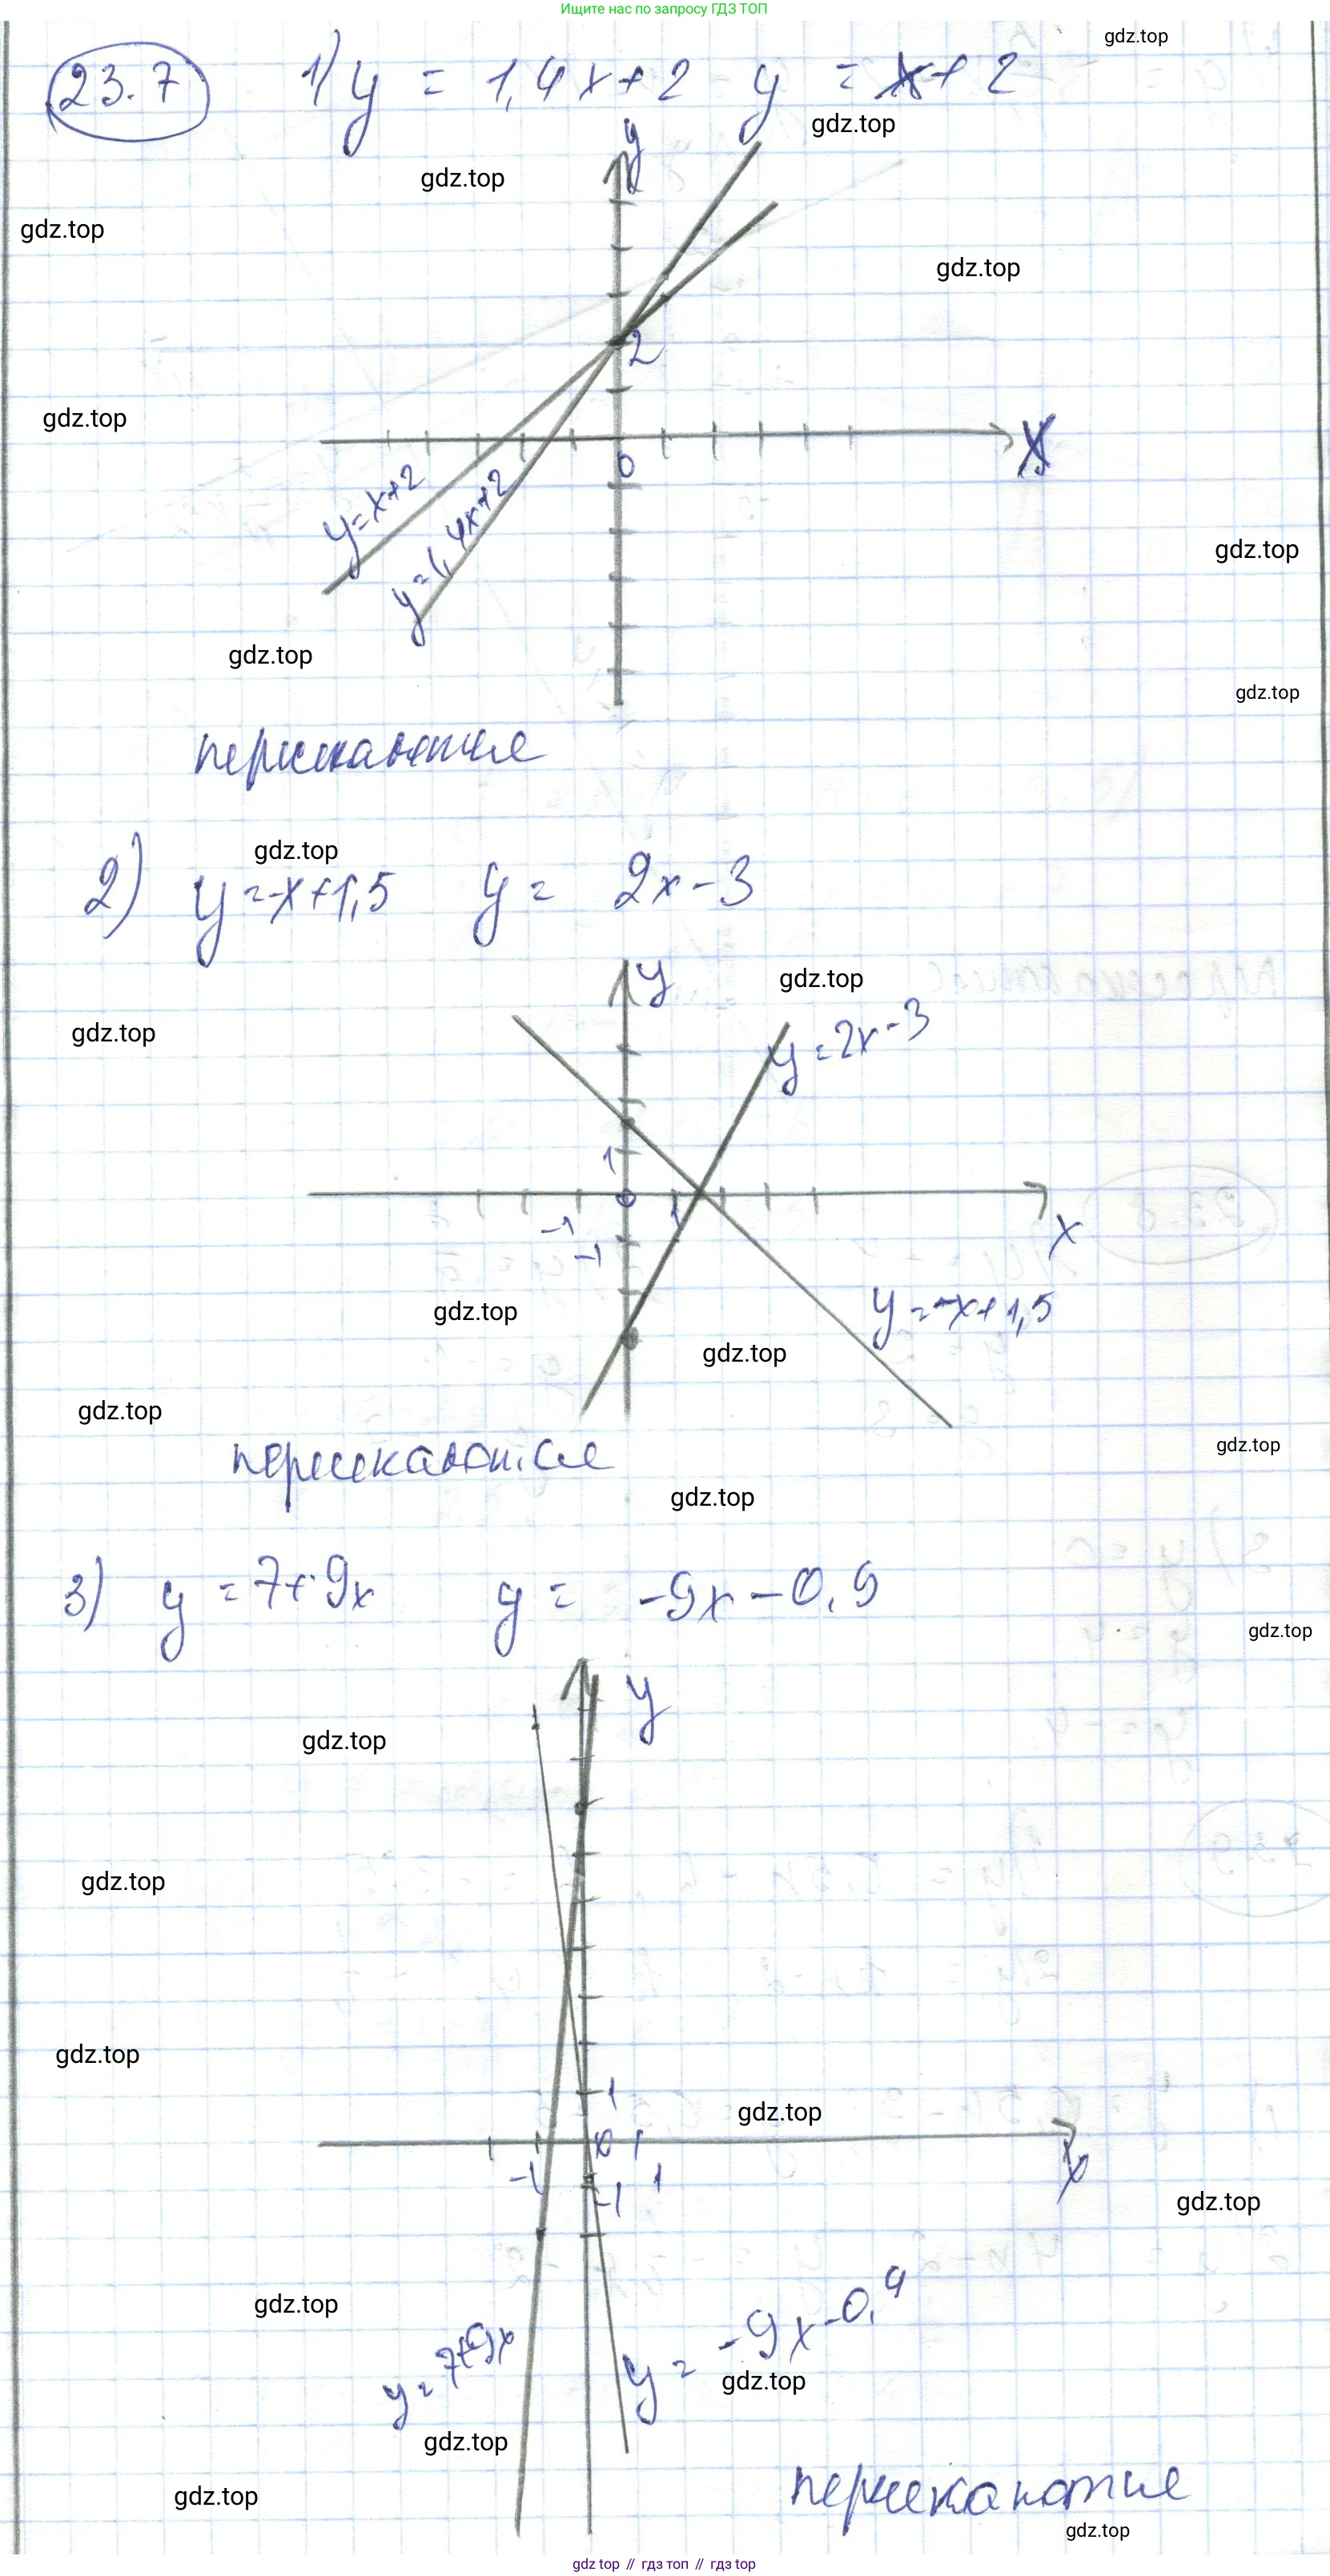 Ищите нас по запросу ГДЗ ТОП
gdz.top
23.7 1) y = 1,4x+2 y = x+2
gdz.top
gdz.top
y
gdz.top
gdz.top
2
gdz.top
x
0
y=x+2
y=1,4x+2
gdz.top
gdz.top
gdz.top
пересекаются
gdz.top
2) y=-x+1,5 y= 2x-3
y
gdz.top
gdz.top
y=2x-3
1
0
-1
1
x
-1
gdz.top
y=-x+1,5
gdz.top
gdz.top
пересекаются
gdz.top
gdz.top
3) y=7+9x y= -9x-0,9
gdz.top
y
gdz.top
gdz.top
gdz.top
1
gdz.top
0
x
-1
1
-1
gdz.top
gdz.top
y=7+9x
y= -9x-0,9
gdz.top
gdz.top
gdz.top
пересекаются
gdz.top
gdz top // гдз топ // гдз top